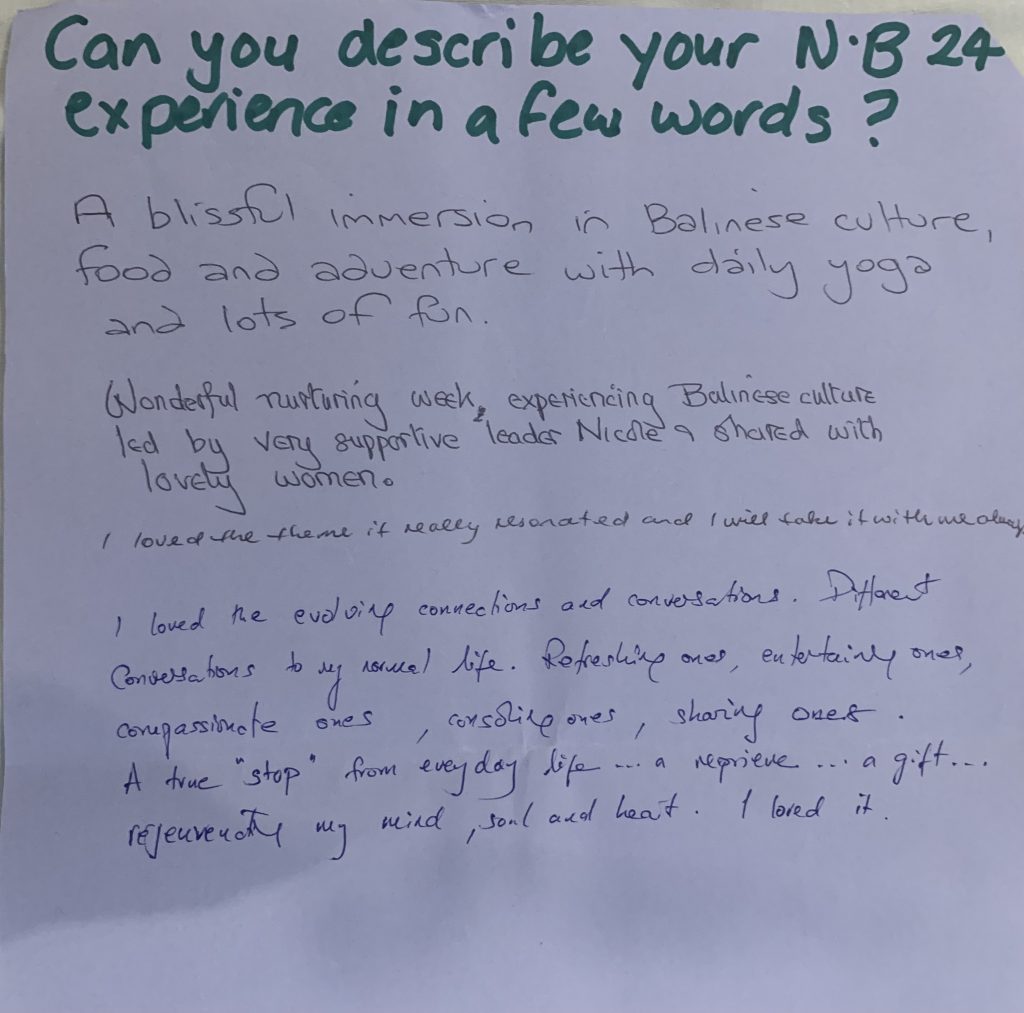 Can you describe your N·B 24
experience in a few words?
A blissful immersion in Balinese culture,
food and adventure with daily yoga
and lots of fun.
Wonderful nurturing week, experiencing Balinese culture
led by very supportive leader Nicole & shared with
lovely women.
I loved the theme it really resonated and I will take it with me always
I loved the evolving connections and conversations. Different
Conversations to my normal life. Refreshing ones, entertaining ones,
compassionate ones, consoling ones, sharing ones.
A true "stop" from everyday life ... a reprieve ... a gift...
rejeuvenating my mind, soul and heart. I loved it.